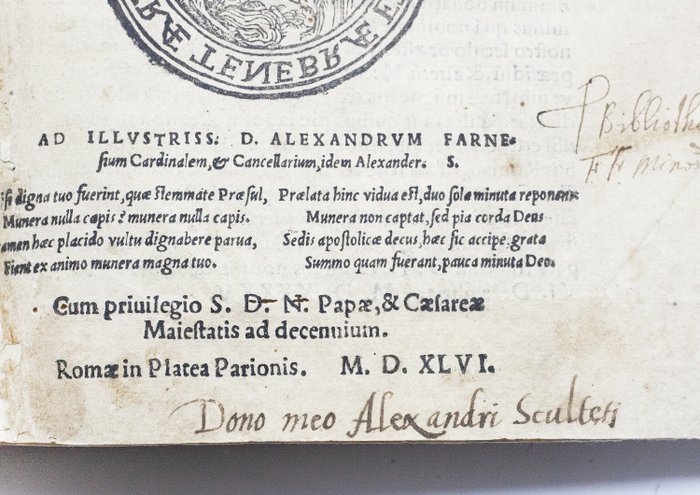 RÆ TENEBRÆ E
AD ILLVSTRISS: D. ALEXANDRVM FARNE-
sium Cardinalem, & Cancellarium, idem Alexander. S.
digna tuo fuerint, quæ stemmate Præsul,
Munera nulla capis? munera nulla capis.
hæc placido vultu dignabere parua,
Fient ex animo munera magna tuo.
Prælata hinc vidua est, duo sola minuta reponens
Munera non captat, sed pia corda Deus
Sedis apostolicæ decus, hæc sic accipe, grata
Summo quam fuerant, pauca minuta Deo.
Cum priuilegio S. D. N. Papæ, & Cæsareæ
Maiestatis ad decennium.
Romæ in Platea Parionis. M. D. XLVI.
Dono meo Alexandri Sculteti
Biblioth